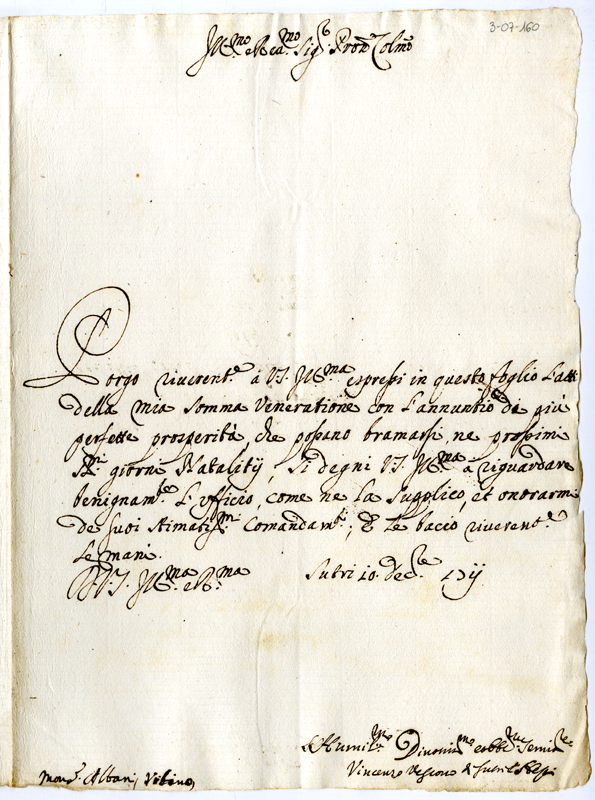 3-07-160
Ill.mo e Rea.mo Sig.r Pron. Colmo
Porgo riuerent.e à V.S. Ill.ma espressi in questo foglio l'atti
della mia somma Veneratione con l'annuntio de più
perfette prosperità, che possano bramarsi ne prossimi
S.mi giorni Natalitij, si degni V.S. Ill.ma à riguardare
benignam.te l'Vfficio, come ne la supplico, et onorarmi
de suoi stimatiss.mi Comandam.ti; E le bacio riuerent.e
le mani.
D V.S. Ill.ma e R.ma Sutri 10. dec.re
Humil.mo Diuotis.mo et obb.mo Seruit.re
Vincenzo Vescouo di Sutri e Nepi
Mons.r Albani, Vrbino